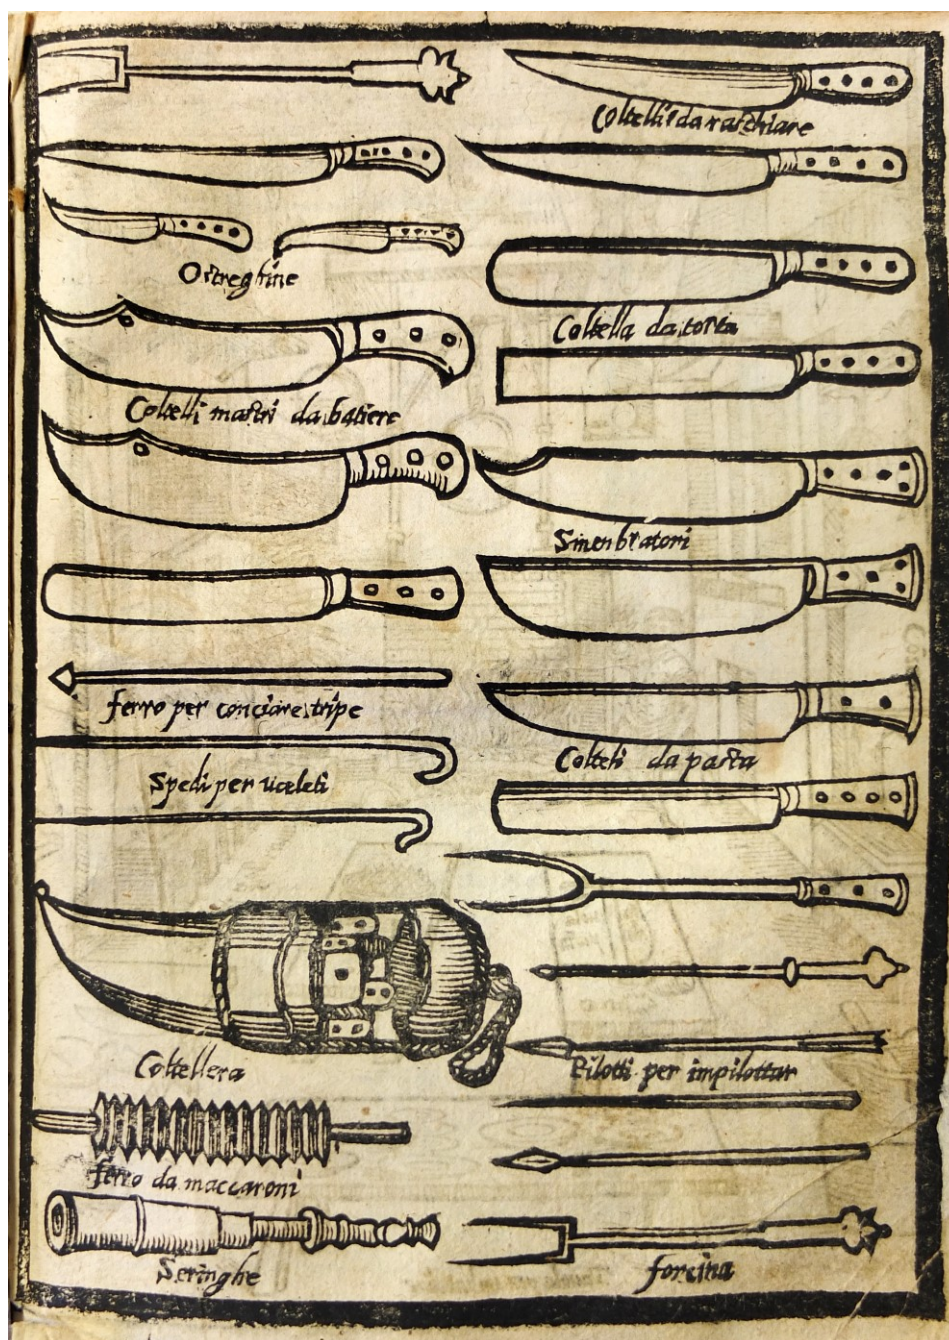 Coltelli da raschiare
Ostreghine
Coltella da torta
Coltelli mastri da batiere
Smenbratori
ferro per conciare tripe
Colteli da pasta
Spedi per uceleti
Coltellera
Pilotti per impilottar
ferro da maccaroni
Seringhe
forcina